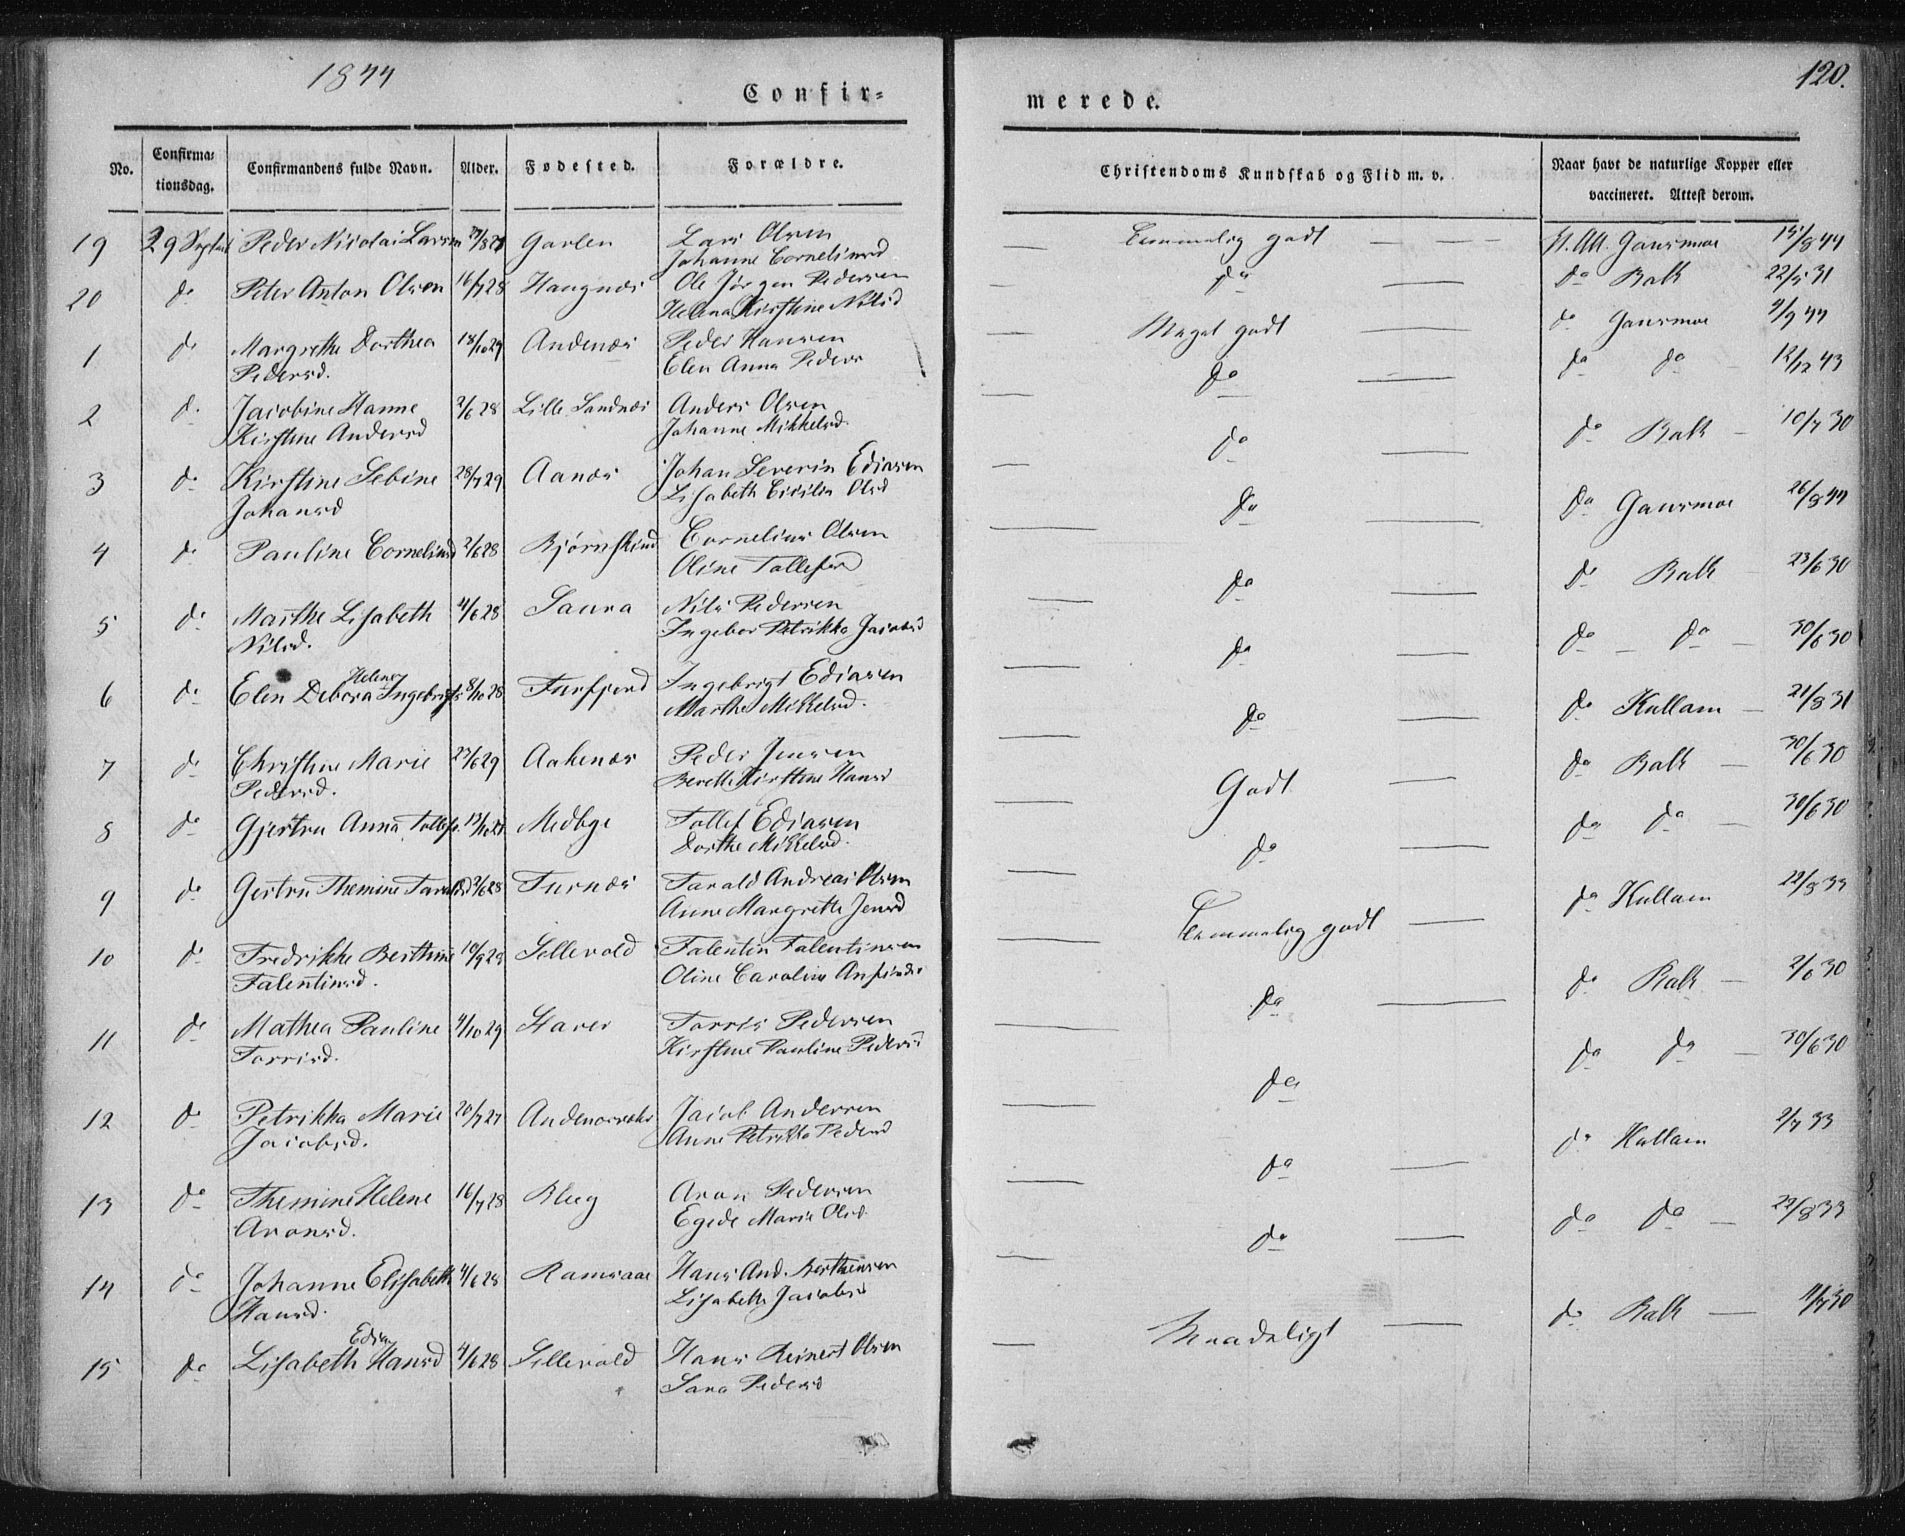 1844
Confir=
merede.
120.
No.
Confirma=
tionsdag.
Confirmandens fulde Navn.
Alder.
Fødested.
Forældre.
Christendoms Kundskab og Flid m. v.
Naar havt de naturlige Kopper eller
vaccineret. Attest derom.
19 29 Septbr Peder Nicolai Larsen Garlen Lars Olsen
Johanne Corneliusd
Temmelig godt Gaarsmoe 15/8 44
20 do Peter Anton Olsen 16/7 28 Haugnæs Ole Jørgen Pedersen
Helena Kirstine Nilsd
do do Balk 22/5 31
1 do Margrethe Dorthea 18/10 29 Andenæs Peder Hansen
Pedersd. Elen Anna Peders
Meget godt do Gaarsmoe 4/9 44
2 do Jacobine Hanne 2/6 28 Lille Sandnæs Anders Olsen
Kirstine Andersd Johanne Mikkelsd.
do do do 12/12 43
3 do Kirstine Sebine 28/7 29 Aanæs Johan Severin Ediasen
Johansd Lisabeth Cicilia Olsd
do do Balk 10/7 30
4 do Pauline Corneliusd 2/6 28 Bjørnskind Cornelius Olsen
Oline Tollefsen
do do Gaarsmoe 26/8 44
5 do Marthe Lisabeth 4/6 28 Saura Nils Pedersen
Nilsd. Ingebor Petrikka Jacobsd
do do Balk 23/6 30
Helene
6 do Elen Debora Ingebrigts 8/10 28 Fursfjord Ingebrigt Ediasen
Marthe Mikkelsd.
do do do 30/6 30
7 do Christine Marie 23/6 29 Aakenæs Peder Jensen
Pedersd. Bereth Kirstine Hansd
do do Kullam 21/8 31
8 do Gjertru Anna Tollefs. Medbye Tollef Ediasen
Dorthe Mikkelsd.
Godt do Balk 30/6 30
9 do Gertru Themine Taraldsd 2/6 28 Furnæs Tarald Andreas Olsen
Anne Margrethe Jensd
do do do 30/6 30
10 do Fredrikke Berthine 10/9 28 Sellevold Falentin Falentinsen
Falentinsd. Oline Caroline
Temmelig godt do Kullam 22/8 33
11 do Mathea Pauline 4/10 29 Staver Torris Pedersen
Torrisd. Kirstine Pauline Pedersd
do do Balk 2/6 30
12 do Petrikka Marie 20/7 27 Jacob Andersen
Jacobsd. Anne Petrikka Pedersd
do do do 30/6 30
13 do Themine Helene 16/7 28 Bleeg Aron Pedersen
Aronsd. Egede Marie Olsd.
do do Kullam 2/7 33
14 do Johanne Elisabeth 4/6 28 Ramsaae Hans And. Berthensen
Hansd. Lisabeth Jacobsd
do do do 22/8 33
Edia
15 do Lisabeth Hansd 4/6 28 Sellevold Hans Reinert Olsen
Sara Pedersd
Maadeligt do Balk 11/7 30